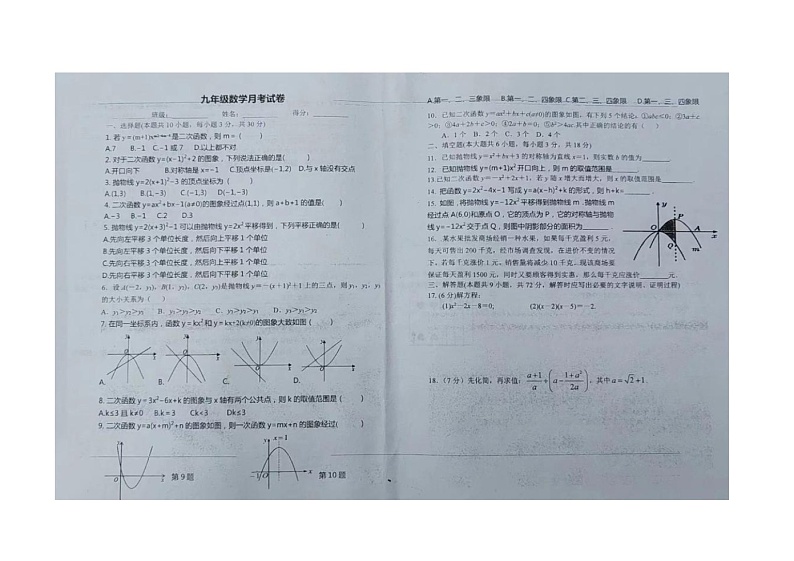 九年级数学月考试卷
班级: 姓名: 得分:
一、选择题(本题共10小题,每小题3分,共30分)
1. 若y=(m+1)x 是二次函数,则m=( )
A.7 B.−1 C.−1或7 D.以上都不对
2. 对于二次函数y=(x−1)²+2的图象,下列说法正确的是( )
A.开口向下 B.对称轴是x=−1 C.顶点坐标是(−1,2) D.与x轴没有交点
3. 抛物线y=2(x+1)²−3的顶点坐标为( )
A.(1,3) B.(1,−3) C.(−1,−3) D.(−1,3)
4. 二次函数y=ax²+bx−1(a≠0)的图象经过点(1,1),则a+b+1的值是( )
A.−3 B.−1 C.2 D.3
5. 抛物线y=2(x+3)²−1可以由抛物线y=2x²平移得到,下列平移正确的是( )
A.先向左平移3个单位长度,然后向上平移1个单位
B.先向左平移3个单位长度,然后向下平移1个单位
C.先向右平移3个单位长度,然后向上平移1个单位
D.先向右平移3个单位长度,然后向下平移1个单位
6. 设A(−2,y₁),B(1,y₂),C(2,y₃)是抛物线y=−(x+1)²+1上的三点,则y₁,y₂,y₃
的大小关系为( )
A. y₁>y₂>y₃ B. y₁>y₃>y₂
7. 在同一坐标系内,函数y=kx²和y=kx+2(k≠0)的图象大致如图( )
A. B. C. D.
8. 二次函数y=3x²−6x+k的图象与x轴有两个公共点,则k的取值范围是( )
A.k≤3且k≠0 B.k=3 Ck<3 Dk≤3
9. 二次函数y=a(x+m)²+n的图象如图,则一次函数y=mx+n的图象经过( )
第9题
x=1
第10题
A.第一、二、三象限 B.第一、二、四象限 C.第二、三、四象限 D.第一、三、四象限
10. 已知二次函数y=ax²+bx+c(a≠0)的图象如图,有下列5个结论:①abc≤0;②3a+c
>0;③4a+2b+c>0;④2a+b=0;⑤b²>4ac.其中正确的结论的有( )
A.1个 B. 2个 C. 3个 D. 4个
二、填空题(本大题共6小题,每小题3分,共18分)
11. 已知抛物线y=x²+bx+3的对称轴为直线x=1,则实数b的值为
12. 已知抛物线y=(m+1)x²开口向上,则m的取值范围是
13.已知二次函数y=−x²+2x+1,若y随x增大而增大,则x的取值范围是
14. 把函数y=2x²−4x−1写成y=a(x−h)²+k的形式,则h+k=
15. 如图,将抛物线y=−12x²平移得到抛物线m.抛物线m
经过点A(6,0)和原点O,它的顶点为P,它的对称轴与抛物
线y=−12x²交于点Q,则图中阴影部分的面积为
16. 某水果批发商场经销一种水果,如果每千克盈利5元,
每天可售出200千克,经市场调查发现,在进价不变的情况
下,若每千克涨价1元,销售量将减少10千克.现该商场要
保证每天盈利1500元,同时又要顾客得到实惠,那么每千克应涨价 元.
三、解答题(本题共9小题,共72分,解答时应写出必要的文字说明、证明过程)
17.(6分)解方程:
(1)x²−2x−8=0, (2)(x−2)(x−5)=−2.
18.(7分)先化简,再求值:a+1/a÷(a−1+a²/2a),其中a=√2+1